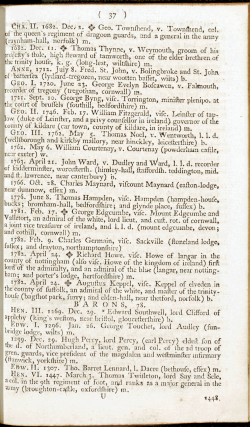 ( 37 )
CHA. II. 1682. Dec. 2. ✤ Geo. Townshend, v. Townshend, col.
of the queen's regiment of dragoon guards, and a general in the army
(raynham-hall, norfolk) m.
1682. Dec. 11. ✤ Thomas Thynne, v. Weymouth, groom of his
majesty's stole, high steward of tamworth, one of the elder brethren of
the trinity house, k. g. (long-leat, wiltshire) m.
ANNE, 1712. July 8. Fred. St. John, v. Bolingbroke and St. John
of battersea (lydiard-tregooze, near wootten basset, wilts) b.
GEO. I. 1720. June 23. George Evelyn Boscawen, v. Falmouth,
recorder of tregony (tregothan, cornwall) m.
1721. Sept. 10. George Byng, visc. Torrington, minister plenipo. at
the court of brussels (southill, bedfordshire) m.
GEO. II. 1746. Feb. 17. William Fitzgerald, visc. Leinster of tap-
low (duke of Leinster, and a privy counsellor in ireland) governor of the
county of kildare (car town, county of kildare, in ireland) m.
GEO. III. 1762. May 5. Thomas Noel, v. Wentworth, l. l. d.
(wellesborough and kirkby mallory, near hinckley, leicestershire) b.
1762. May 6. William Courtenay, v. Courtenay (powderham castle,
near exeter) w.
1763. April 21. John Ward, v. Dudley and Ward, l. l. d. recorder
of kidderminster, worcestersh. (himley-hall, staffordsh. teddington, midd.
and st. lawrence, near canterbury) m.
1766. Oct. 28. Charles Maynard, viscount Maynard (easton-lodge,
near dunmow, essex) m.
1776. June 8. Thomas Hampden, visc. Hampden (hampden-house,
bucks; bromham-hall, bedfordshire; and glynde place, sussex) b.
1781. Feb. 17. ✤ George Edgcumbe, visc. Mount Edgcumbe and
Valletort, an admiral of the white, lord lieut. and cust. rot. of cornwall,
a joint vice treasurer of ireland, and l. l. d. (mount edgcumbe, devon;
and cothill, cornwall) m.
1782. Feb. 9. Charles Germain, visc. Sackville (stoneland lodge,
sussex; and drayton, northamptonshire)
1782. April 24. ✤ Richard Howe, visc. Howe of langar in the
county of nottingham (also visc. Howe of the kingdom of ireland) first
lord of the admiralty, and an admiral of the blue (langar, near notting-
ham; and porter's lodge, hertfordshire) m.
1782. April 24. ✤ Augustus Keppel, visc. Keppel of elvedon in
the county of suffolk, an admiral of the white, and master of the trinity-
house (bagshot park, surry; and elden-hall, near thetford, norfolk) b.
BARONS, 78.
HEN. III. 1269. Dec. 29. * Edward Southwell, lord Clifford of
appleby (king's weston, near bristol, gloucestershire) b.
EDW. I. 1296. Jan. 26. George Touchet, lord Audley
bridge lodge, wilts) m.
1299. Dec. 29. Hugh Percy, lord Percy, (earl Percy) eldest son of the
d. of Northumberland, a lieut. gen. and col. of the 2d troop of
gren. guards, vice president of the magdalen and westminster infirmary
(stanwick, yorkshire) m.
EDW. II. 1307. Tho. Barret Lennard, l. Dacre (belhouse, essex) m.
HEN. VI. 1447. March 3. Thomas Twisleton, lord Say and Sele,
a col. in the 9th regiment of foot, and ranks as a major general in the
army (broughton-castle, oxfordshire) m.
U
1448.